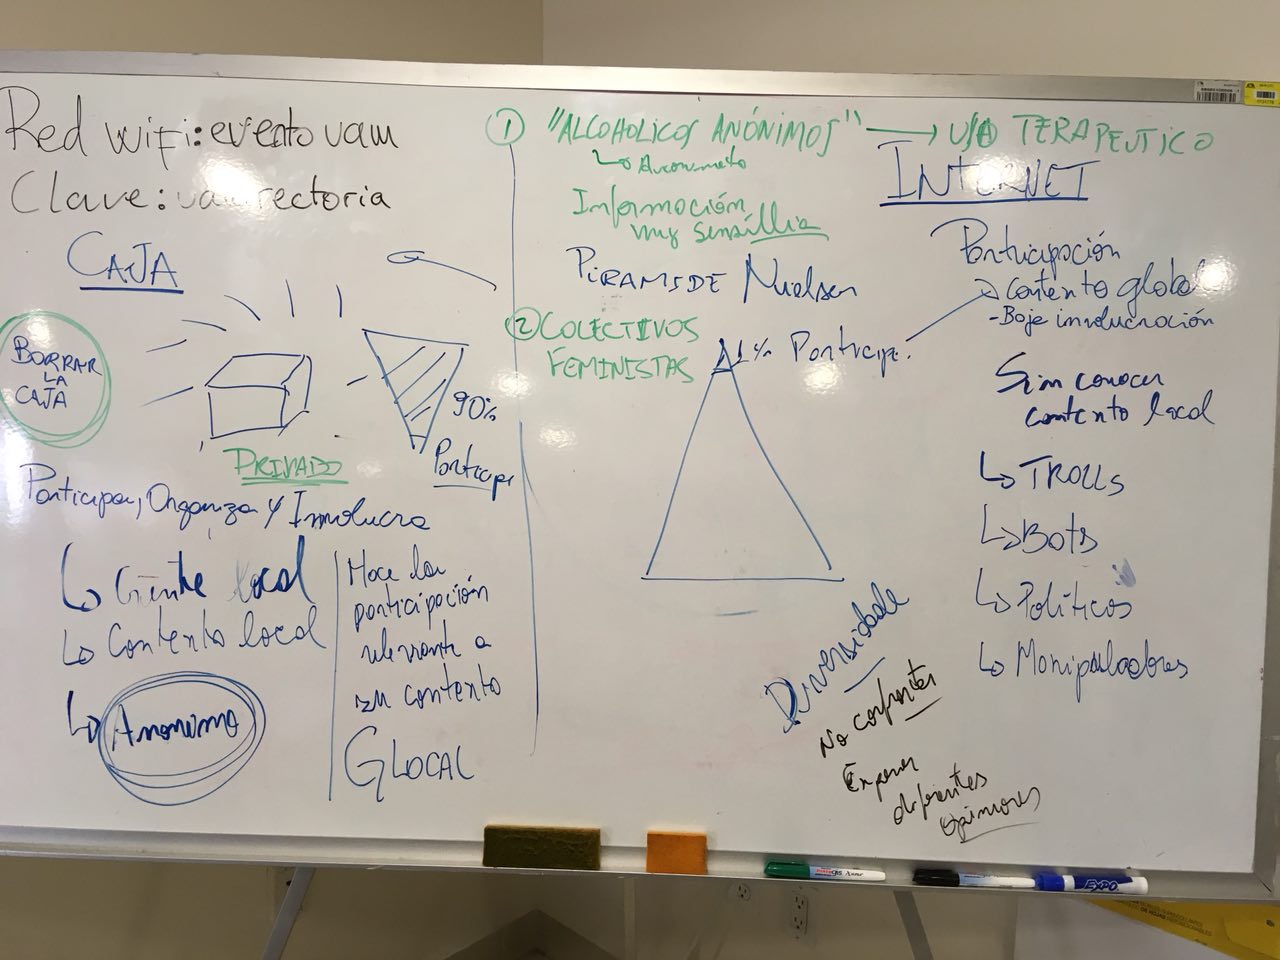 Red wifi: evento uam
Clave: uamrectoria
CAJA
BORRAR
LA
CAJA
90%
Participa
PRIVADO
Participa, Organiza y Involucra
Gente local
Contexto local
Anonimo
Hace la
participación
relevante a
su contexto
GLOCAL
1 "ALCOHOLICOS ANÓNIMOS" → TERAPEUTICO
Anonimato
Información
muy sensillia
PIRAMIDE Nielsen
2 COLECTIVOS
FEMINISTAS
1% Participa.
Diversidade
No confrontes
Exponer
diferentes
opiniones
INTERNET
Participación
Contexto global
- Baje involucración
Sim conocer
contexto local
TROLLS
Bots
Políticos
Manipuladores
EXPO